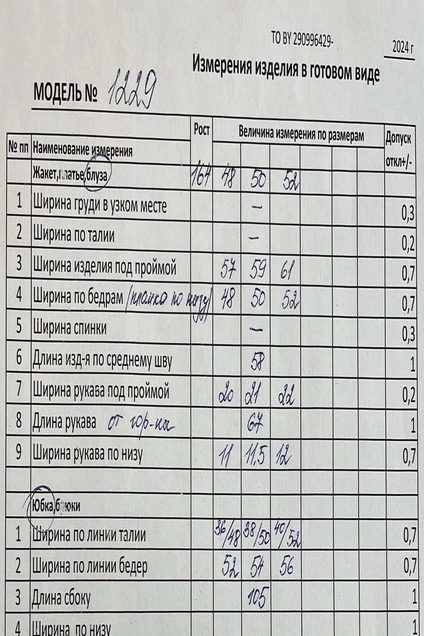 ТО BY 290996429-
2024 г
Измерения изделия в готовом виде
МОДЕЛЬ № 1229
№ пп Наименование измерения Рост Величина измерения по размерам Допуск откл+/-
Жакет, платье, блуза 164 48 50 52
1 Ширина груди в узком месте — 0,3
2 Ширина по талии — 0,2
3 Ширина изделия под проймой 57 59 61 0,7
4 Ширина по бедрам /планка по низу/ 48 50 52 0,7
5 Ширина спинки — 0,3
6 Длина изд-я по среднему шву 58 1
7 Ширина рукава под проймой 20 21 22 0,2
8 Длина рукава от гор-ны 67 1
9 Ширина рукава по низу 11 11,5 12 0,7
Юбка, брюки
1 Ширина по линии талии 36/48 38/50 40/52 0,7
2 Ширина по линии бедер 52 54 56 0,7
3 Длина сбоку 105 1
4 Ширина по низу 1